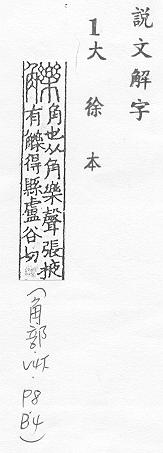 説文解字
1大徐本
觻角也从角樂聲張掖
有觻得縣盧谷切
(角部.V4下.P8B.4)